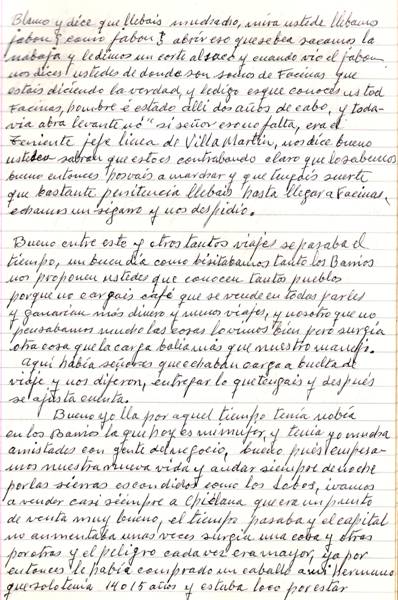 Blanco y dice que llebais muchachos, mira ustede llebamos
jabon ¿como jabon? abrir eso que se bea sacamos la
nabaja y ledimos un corte al saco y cuando vio el jabon
nos dices ustedes de donde son somos de Facinas que
estais diciendo la verdad, y ledigo es que conoces usted
Facinas, hombre é estado alli dos años de cabo, y toda-
via abra levante no" si señor eso no falta, era el
Teniente jefe linea de Villa Martin, nos dice bueno
ustedes sabran que esto es contrabando claro que lo sabemos
bueno entonces podais a marchar y que tengais suerte
que bastante penitencia llebais hasta llegar a Facinas,
echamos un sigarro y nos despidio.
Bueno entre este y otros tantos viajes se pasaba el
tiempo, un buen dia como bisitabamos tanto los Barrios
nos proponen ustedes que conocen tantos pueblos
porque no cargais café que se vende en todas partes
y ganarian más dinero y menos viajes, y nosotro que no
pensabamos mucho las cosas lo vimos bien pero surgia
otra cosa que la carga balia más que nuestro manejo.
Aqui había señores que echaban carga a buelta de
viaje y nos dijeron, entregar lo que tengais y después
se ajusta cuenta.
Bueno yo lla por aquel tiempo tenía nobia
en los Barrios la que hoy es mi mujer, y tenía yo mucha
amistades con gente del negocio, bueno pués empesa-
mos nuestra nueva vida y andar siempre de noche
por las sierras escondidos como los Lobos, ivamos
a vender casi siémpre a Chiclana que era un punto
de venta muy bueno, el tiempo pasaba y el capital
no aumentaba unas veces surgia una cosa y otras
por otras y el peligro cada vez era mayor, ya por
entonces le había comprado un caballo a mi hermano
que solo tenía 14 o 15 años y estaba loco por estar